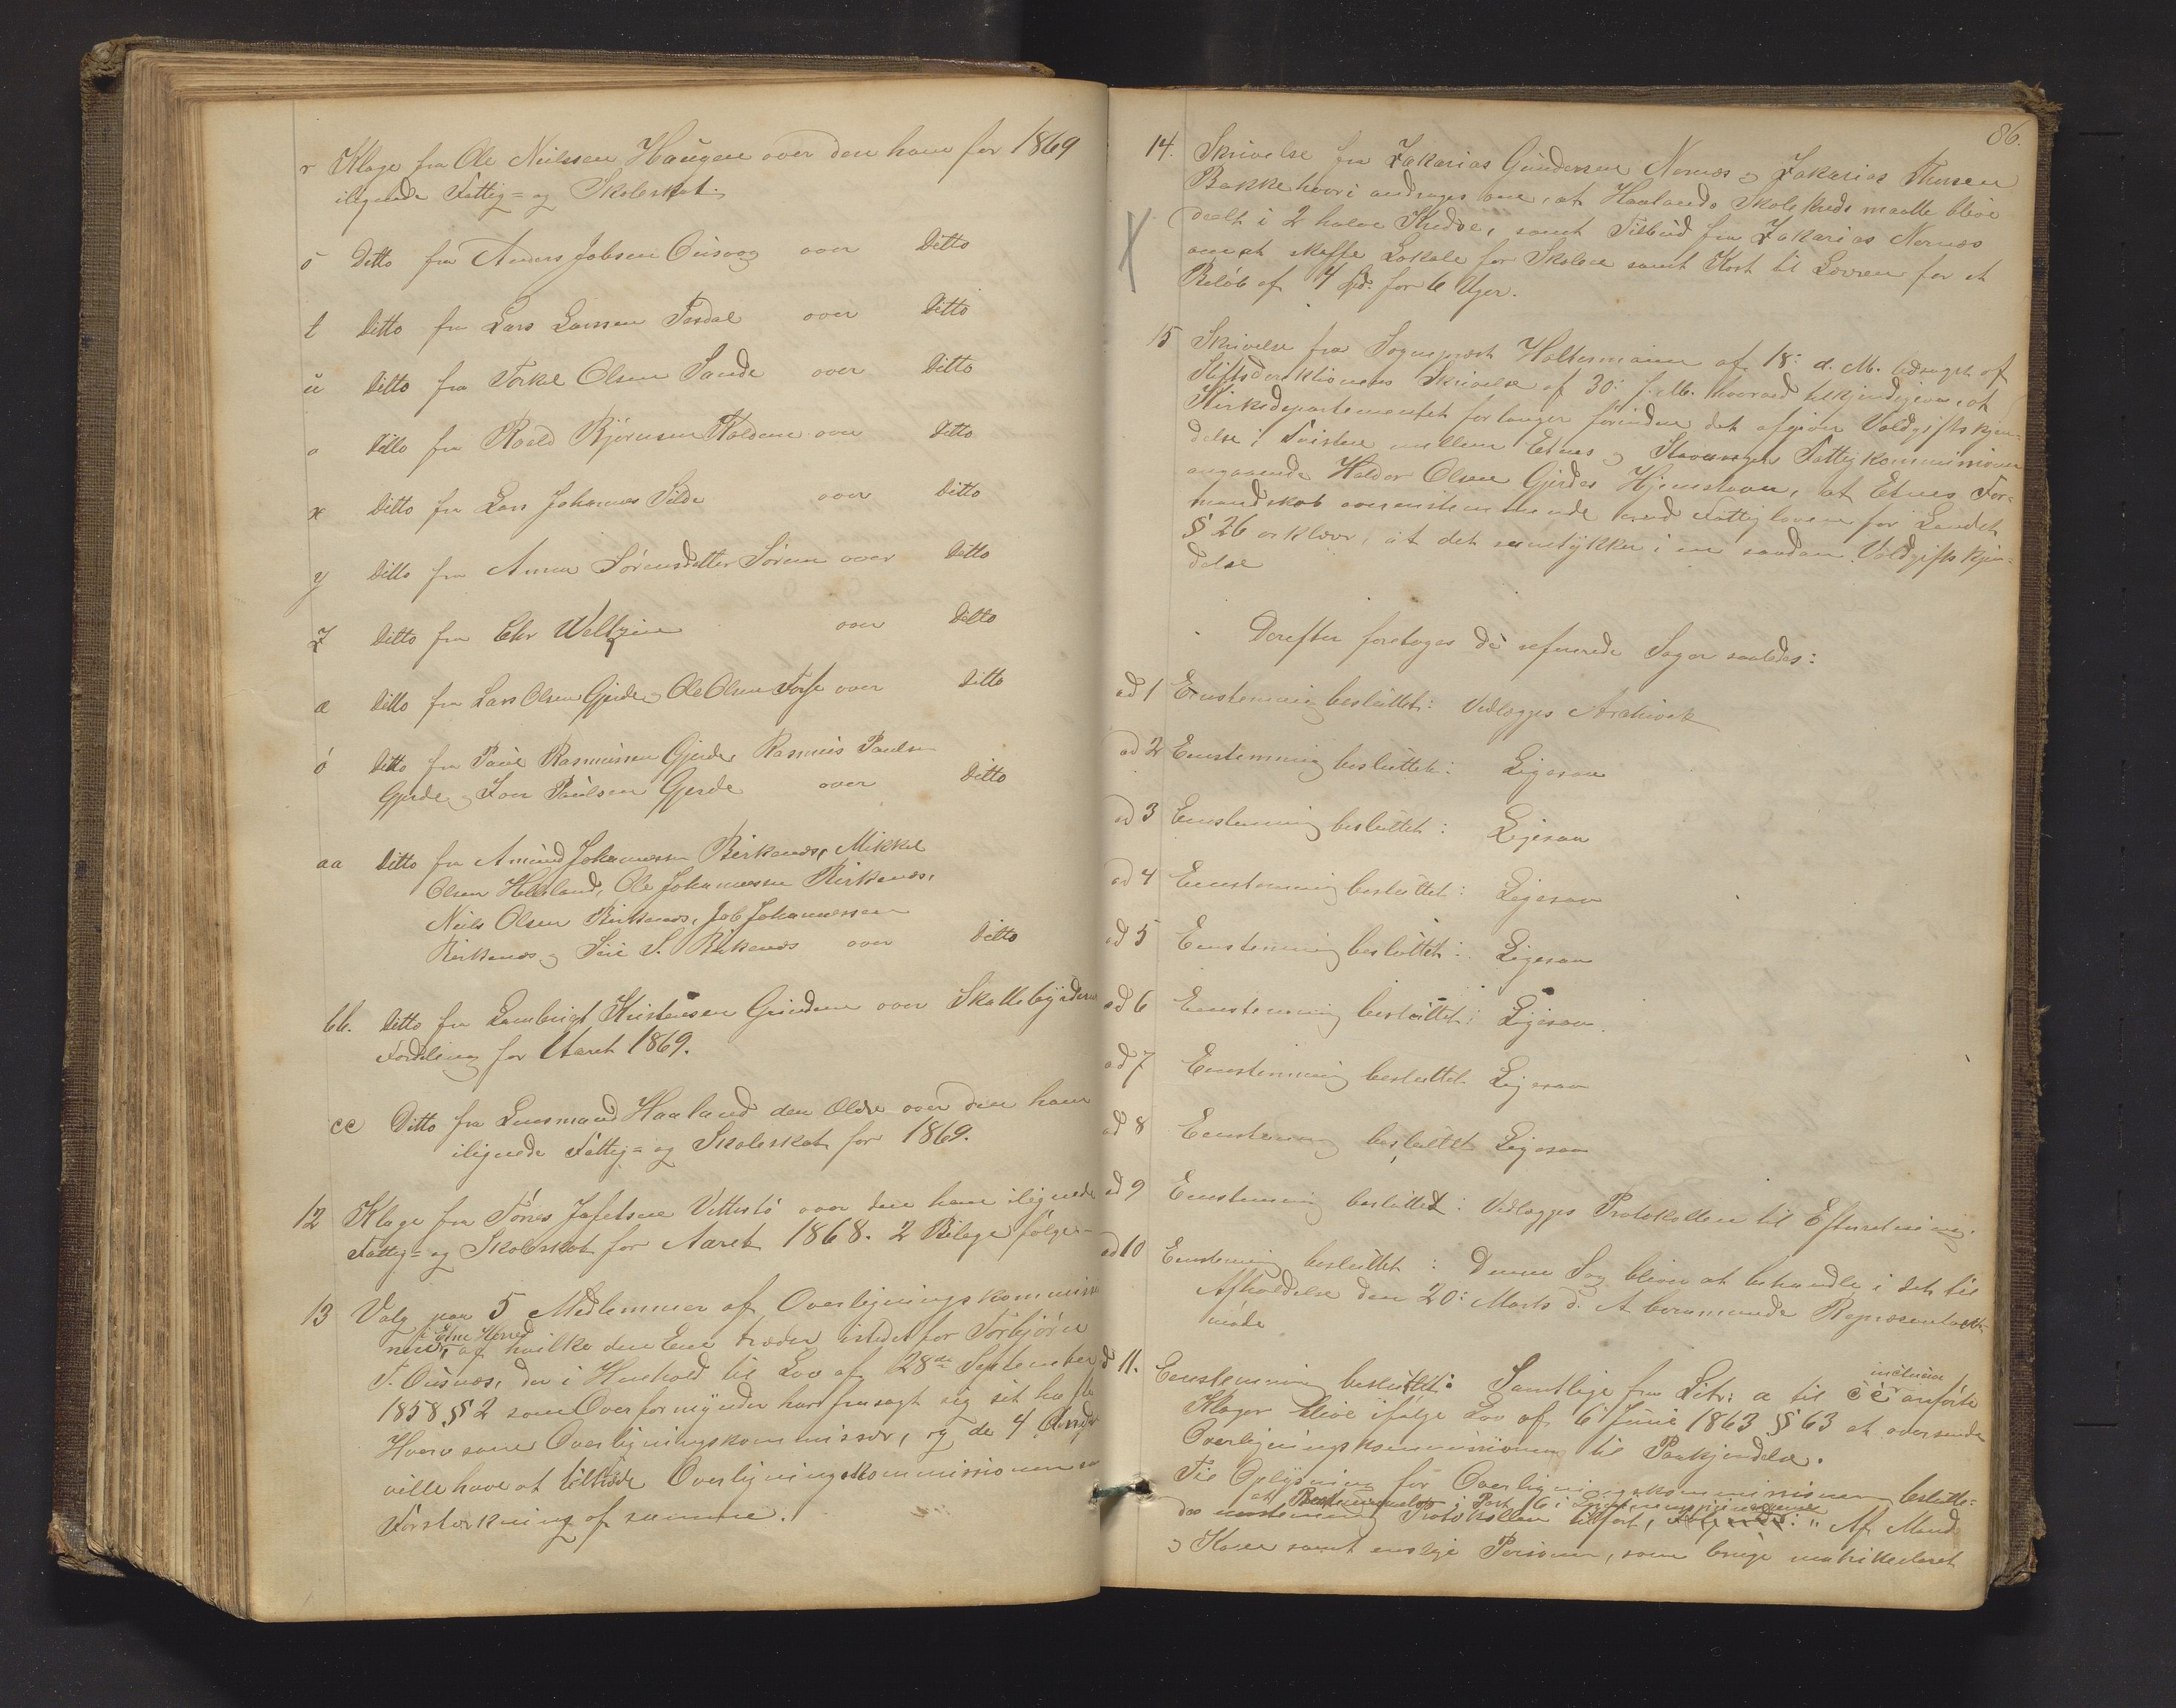 r Klage fra Ole Neilssen Haugen over den ham for 1869
ilignede Fattig= og Skoleskat.
s Ditto fra Anders Jobsen Ousvog over Ditto
t Ditto fra Lars Larssen Tesdal over Ditto
u Ditto fra Torkel Olsen Sande over Ditto
v Ditto fra Roald Bjørnsen Koldene over Ditto
x Ditto fra Lars Johannes Silde over Ditto
y Ditto fra Anna Sørensdatter Sørum over Ditto
z Ditto fra Chr Weltzin over Ditto
æ Ditto fra Lars Olsen Gjerde og Ole Olsen Torſe over Ditto
ø Ditto fra Paul Rasmussen Gjerde, Rasmus Paulsen
Gjerde og Iver Paulsen Gjerde over Ditto
aa Ditto fra Amund Johannessen Birkenæs, Mikkel
Olsen Helland, Ole Johannessen Birkenæs,
Neils Olsen Birkenæs, Job Johannessen
Birkenæs og Siri S. Birkenæs over Ditto
bb. Ditto fra Lambrigt Kristensen Grindem over Skattebyrdens
Fordeling for Aaret 1869.
cc Ditto fra Lensmand Haaland den Ældre over den ham
ilignede Fattig= og Skoleskat for 1869.
12 Klage fra Tønes Jafetsen Vettestø over den ham ilignede
Fattig= og Skoleskat for Aaret 1868. 2 Bilage følger.
13 Valg paa 5 Medlemmer af Overligningskommissio
i Etne Herred
nen, af hvilke den Ene træder istedet for Torbjørn
T. Ousnæs, der i Henhold til Lov af 28de September
1858 § 2 som Overformynder har frasagt sig sit ha
Hverv som Overligningskommissær, og de 4 Andre
ville have at tiltræde Overligningskommissionen som
Forstærkning af samme.
86.
14. Skrivelse fra Zakarias Gundersen Nernæs og Zakarias Thorsen
Bakke hvori andrages om, at Haalands Skolekreds maatte blive
deelt i 2 halve Kredse, samt Tilbud fra Zakarias Nernæs
om at skaffe Lokale for Skolen samt Kost til Læreren for et
Beløb af 4 Spd. for 6 Uger.
15 Skrivelse fra Sognepræst Haltermann af 18: d. M. ledsaget af
Stiftsdirektionens Skrivelse af 30: f. M. hvorved tilkjendegives, at
Kirkedepartementet forlanger førinden det afgiver Voldgiftskjen-
delse i Tvisten mellem Etnes og Stavangers Fattigkommissioner
angaaende Haldor Olsen Gjerdes Hjemstavn, at Etnes For-
mandskab overensstemmende med Fattigloven for Landet
§ 26 erklærer, at det samtykker i en saadan Voldgiftskjen-
delse
Derefter foretoges de refererede Sager saaledes:
ad 1 Eenstemmig besluttet: Vedlægges Arkivet
ad 2 Eenstemmig besluttet: Ligesaa
ad 3 Eenstemmig besluttet: Ligesaa
ad 4 Eenstemmig besluttet: Ligesaa
ad 5 Eenstemmig besluttet: Ligesaa
ad 6 Eenstemmig besluttet: Ligesaa.
ad 7 Eenstemmig besluttet Ligesaa
ad 8 Eenstemmig besluttet Ligesaa
ad 9 Eenstemmig besluttet: Vedlægges Protokollen til Efterretning.
ad 10 Eenstemmig besluttet: Denne Sag bliver at behandle i det til
Afholdelse den 20: Marts d. A berammende Repræsentant-
møde
ad 11. Eenstemmig besluttet: Samtlige fra Litr: a til cc inclusive anførte
Klager blive ifølge Lov af 6 Juni 1863 § 63 at oversende
Overligningskommissionen til Paakjendelse.
Til Oplysning for Overligningskommissionen beslutte-
at Bestemmelsen i Post 6 i
des eenstemmig Protokollen tilført, følgende: "Af Mand
og Kone samt enslige Personer, som bruge matrikuleret